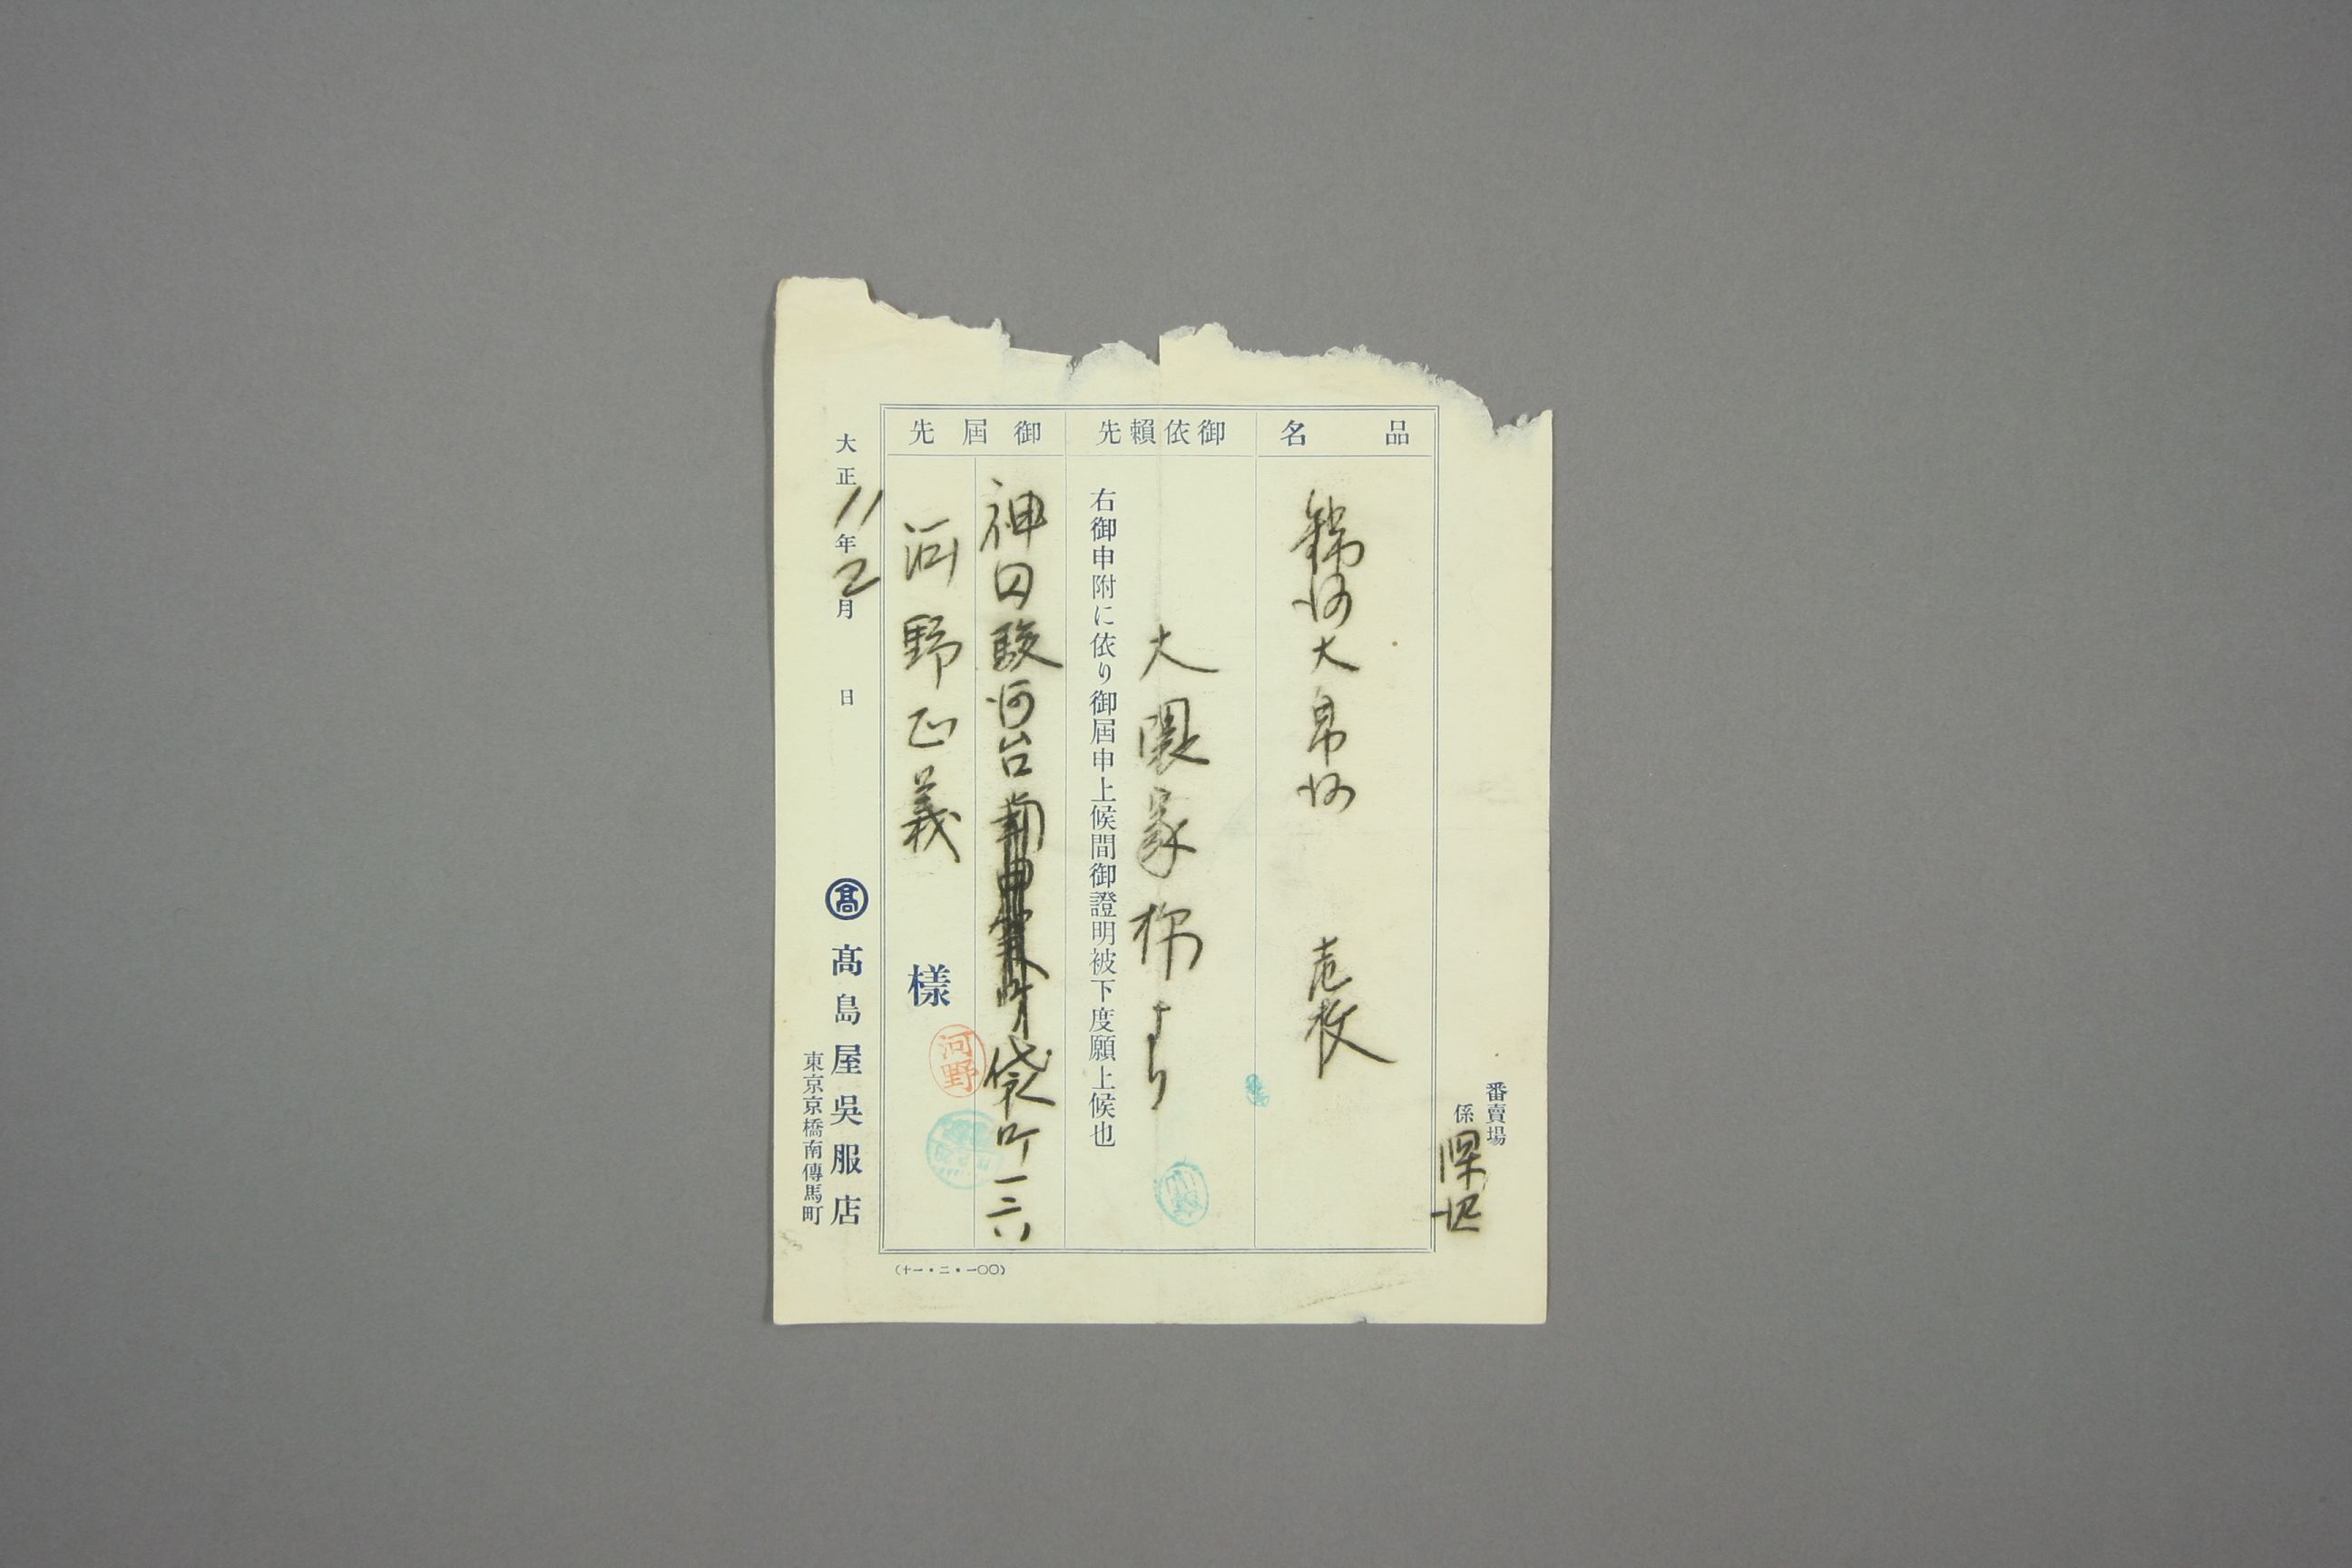 番賣場
係 渡辺
品名
錦紗大帛紗 壱枚
御依賴先
大隈家様より
右御申附に依り御屆申上候間御證明被下度願上候也
御屆先
神田駿河台袋町一二八
河野正義 樣
河野
大正11年2月 日
髙 髙島屋吳服店
東京京橋南傳馬町
(十一・二・一〇〇)